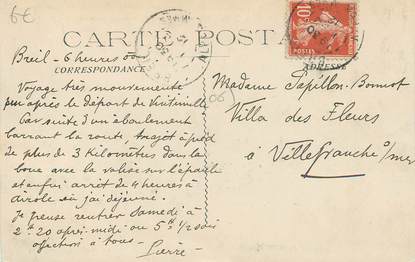 6€
CARTE POSTALE
CORRESPONDANCE
ADRESSE
10
POSTES
Breil - 6 heures
Voyage très mouvementé
peu après le départ de Vintimille
Car suite d'un éboulement
barrant la route trajet à pied
de plus de 3 Kilomètres dans la
boue avec la valise sur l'épaule
et enfin arrêt de 4 heures à
Airole où j'ai déjeuné.
Je pense rentrer samedi à
2h 20 après midi ou 5h 1/2 soir
affection à tous -
Pierre -
06
Madame Papillon-Bonnot
Villa des Fleurs
à Villefranche s/mer